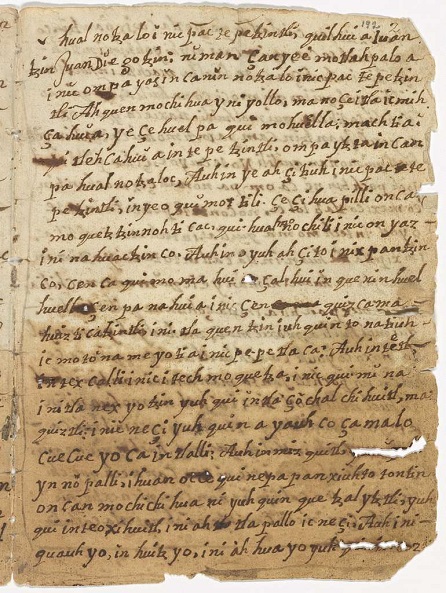 hualnotzalo inicpac tepetzintli, quilhuia Iuan
tzin Juan Diegotzin; niman çan yeè motlahpaloa
inic ompa yaz in canin notzalo inicpac tepetzin
tli. Ah quen mochihua yn iyollo, manoçeitla ic mih
çahuia, yeçe huel pa qui mohuella, machtia
qui tlehcahuia in tepetzintli, ompa ytta in can
pa hual notzaloc, Auh in ye ahçitiuh inic pac te
petzintli, in yeo quimottili çe çihuapilli onca
moquetzinnohticac, qui hualmonochili inic on yaz
in inahuactzinco. Auh in o yuh ahçito in ixpantzin
co, cenca qui moma huiçalhui in quenin huel
huella çen panahuia inic çen quizcama
huizticatzintli, in itla quentzin iuhquin tonatiuh
ic motonameyotia inic pepetlaca. Auh in tetl
in texcalli inic itech moquetza, inic qui mina
in itlanexyotzin yuhqui in tlaçochalchihuitl, ma
quiztli, inic neçi yuhquin ayauhcoçamalo
cuecueyoca in tlalli, Auh in mizquitl,
yn nopalli, ihuan occequi nepapan xiuhtotontin
oncan mochichihuani yuhquin quetzalytztli, yuh
qui inteoxihuitl, in iahtlapallo ic neçi. Auh in i
quauhyo, in huitzyo, in iàhhuayo yuh